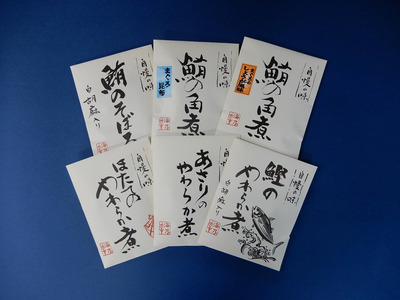 自慢の味
鮪のそぼろ
白胡麻入り
自慢の味
鮪の角煮
まぐろ
昆布
自慢の味
鮪の角煮
自慢の味
ほたての
やわらか煮
あさりの
やわらか煮
白胡麻入り
自慢の味
鰹の
やわらか煮